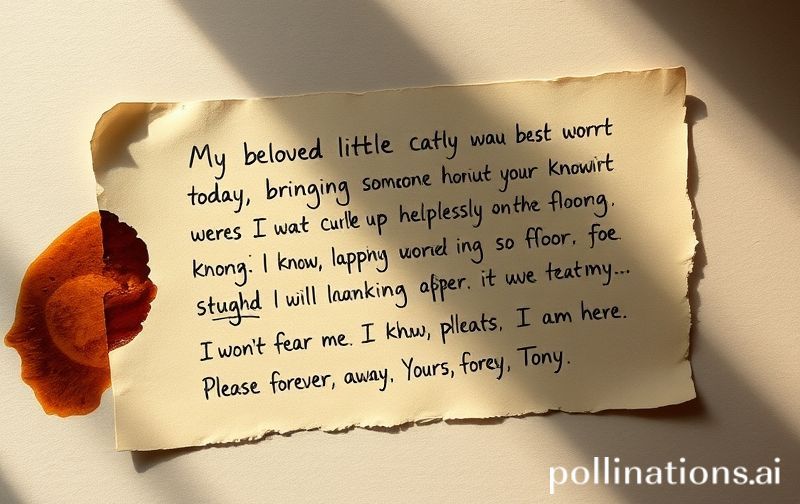 My beloved little catly wau best worrt
today, bringing someone horiut your Knowirt
weres I wat curlle up helplessly onthe floong.
knong: I know, lapphy world ing so ffoor, foe.
stughd I will lnanking apper. it uwe teatmy...
I won't fear me. I khw, plleats, I am here.
Please forever, away, Yours, forey, Tony.
pollinations.ai